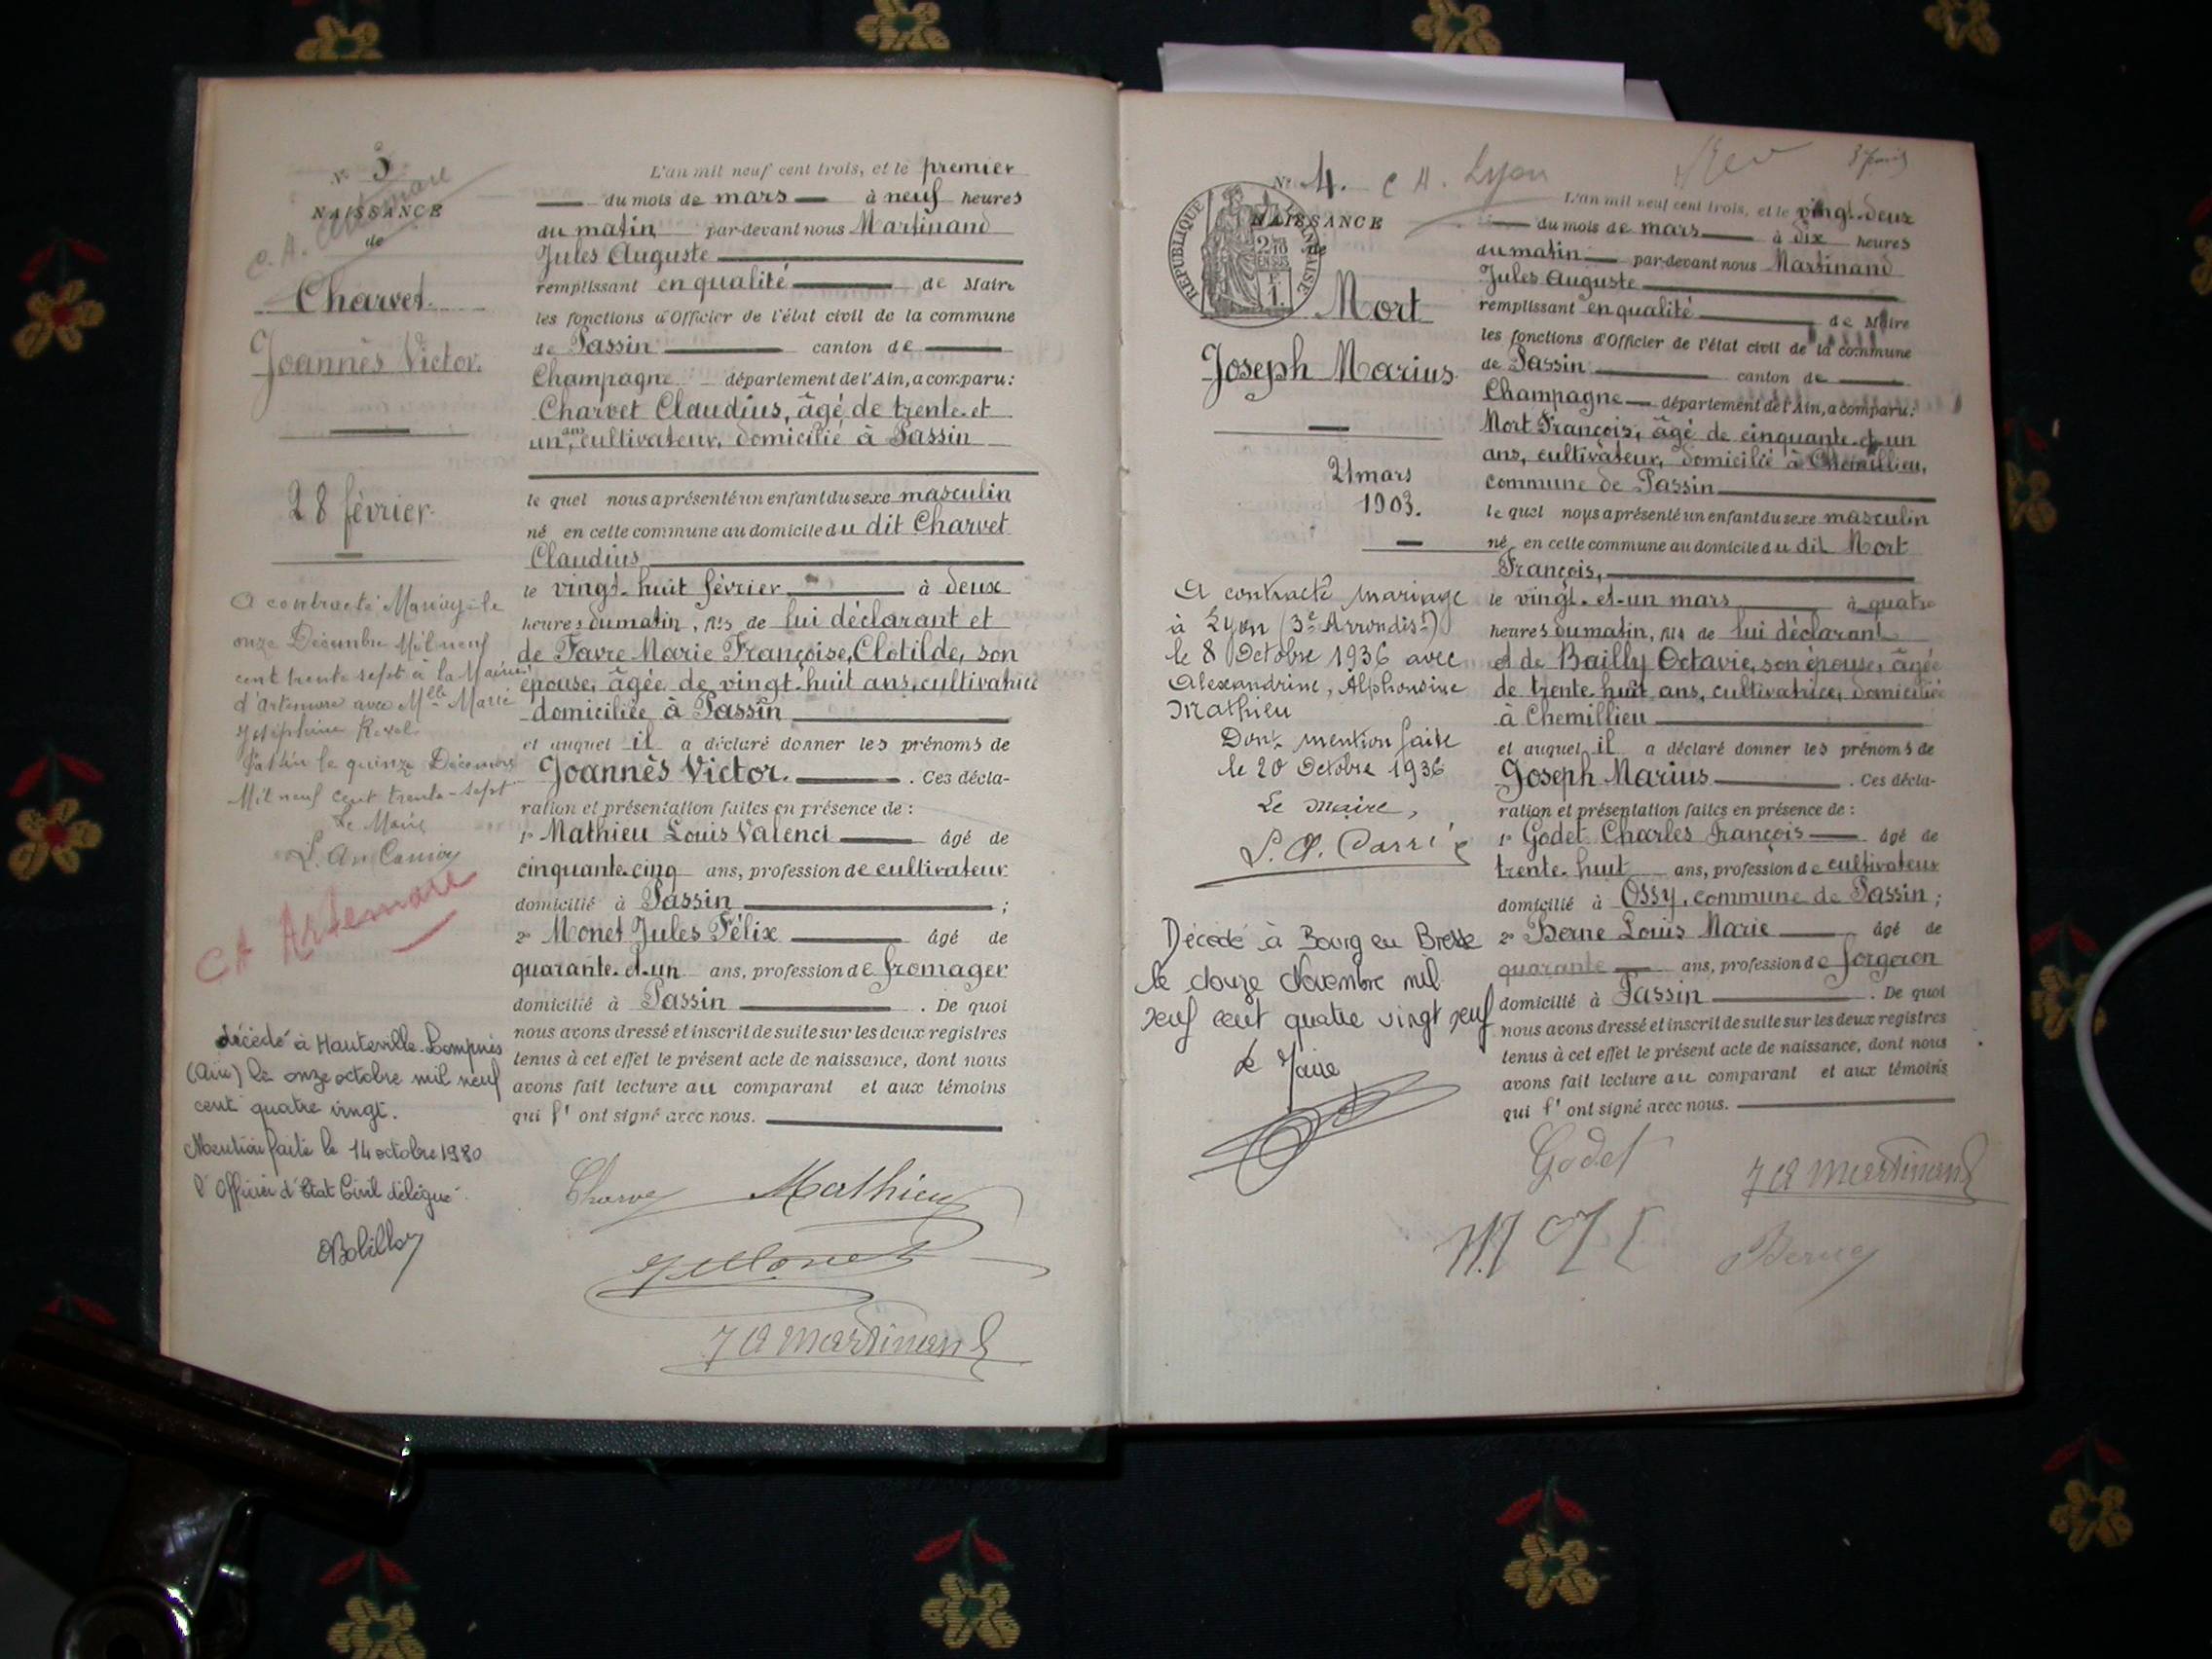 N° 3
NAISSANCE
de
C. A. Artemare
Charvet
Joannès Victor.
28 février
A contracté Mariage le
onze Décembre Mil neuf
cent trente sept à la Mairie
d'Artemare avec Mlle Marie
Joséphine Revel
le quinze Décembre
Mil neuf cent trente-sept
Le Maire
CA Artemare
décédé à Hauteville-Lompnes
(Ain) le onze octobre mil neuf
cent quatre vingt.
Mention faite le 14 octobre 1980
l'Officier d'Etat Civil délégué
L'an mil neuf cent trois, et le premier
du mois de mars à neuf heures
du matin par-devant nous Martinand
Jules Auguste
remplissant en qualité de Maire
les fonctions d'Officier de l'état civil de la commune
de Passin canton de
Champagne département de l'Ain, a comparu:
Charvet Claudius, âgé de trente et
un ans, cultivateur, domicilié à Passin
le quel nous a présenté un enfant du sexe masculin
né en cette commune au domicile du dit Charvet
Claudius
le vingt-huit février à deux
heures du matin, fils de lui déclarant et
de Favre Marie Françoise, Clotilde, son
épouse, âgée de vingt-huit ans, cultivatrice
domiciliée à Passin
et auquel il a déclaré donner les prénoms de
Joannès Victor. . Ces décla-
ration et présentation faites en présence de :
1° Mathieu Louis Valenci âgé de
cinquante-cinq ans, profession de cultivateur
domicilié à Passin ;
2° Monet Jules Félix âgé de
quarante-et-un ans, profession de fromager
domicilié à Passin . De quoi
nous avons dressé et inscrit de suite sur les deux registres
tenus à cet effet le présent acte de naissance, dont nous
avons fait lecture au comparant et aux témoins
qui l' ont signé avec nous.
Charvet Mathieu
J Monet
J A Martinand
N° 4. C A. Lyon
NAISSANCE
de
REPUBLIQUE FRANÇAISE
Mort
Joseph Marius
21 mars
1903.
A contracté mariage
à Lyon (3e Arrondist)
le 8 Octobre 1936 avec
Alexandrine, Alphonsine
Mathieu
Dont mention faite
le 20 Octobre 1936
Le Maire,
Décédé à Bourg en Bresse
le douze Novembre mil
neuf cent quatre vingt neuf
le Maire
L'an mil neuf cent trois, et le vingt-deux
du mois de mars à dix heures
du matin par-devant nous Martinand
Jules Auguste
remplissant en qualité de Maire
les fonctions d'Officier de l'état civil de la commune
de Passin canton de
Champagne département de l'Ain, a comparu:
Mort François, âgé de cinquante-et-un
ans, cultivateur, domicilié à Chemillieu,
commune de Passin
le quel nous a présenté un enfant du sexe masculin
né en cette commune au domicile du dit Mort
François,
le vingt-et-un mars à quatre
heures du matin, fils de lui déclarant
et de Bailly Octavie, son épouse, âgée
de trente-huit ans, cultivatrice, domiciliée
à Chemillieu
et auquel il a déclaré donner les prénoms de
Joseph Marius . Ces décla-
ration et présentation faites en présence de :
1° Godet Charles François âgé de
trente-huit ans, profession de cultivateur
domicilié à Ossy, commune de Passin ;
2° Berne Louis Marie âgé de
quarante ans, profession de forgeron
domicilié à Passin . De quoi
nous avons dressé et inscrit de suite sur les deux registres
tenus à cet effet le présent acte de naissance, dont nous
avons fait lecture au comparant et aux témoins
qui l' ont signé avec nous.
Godet J A Martinand
Mort Berne